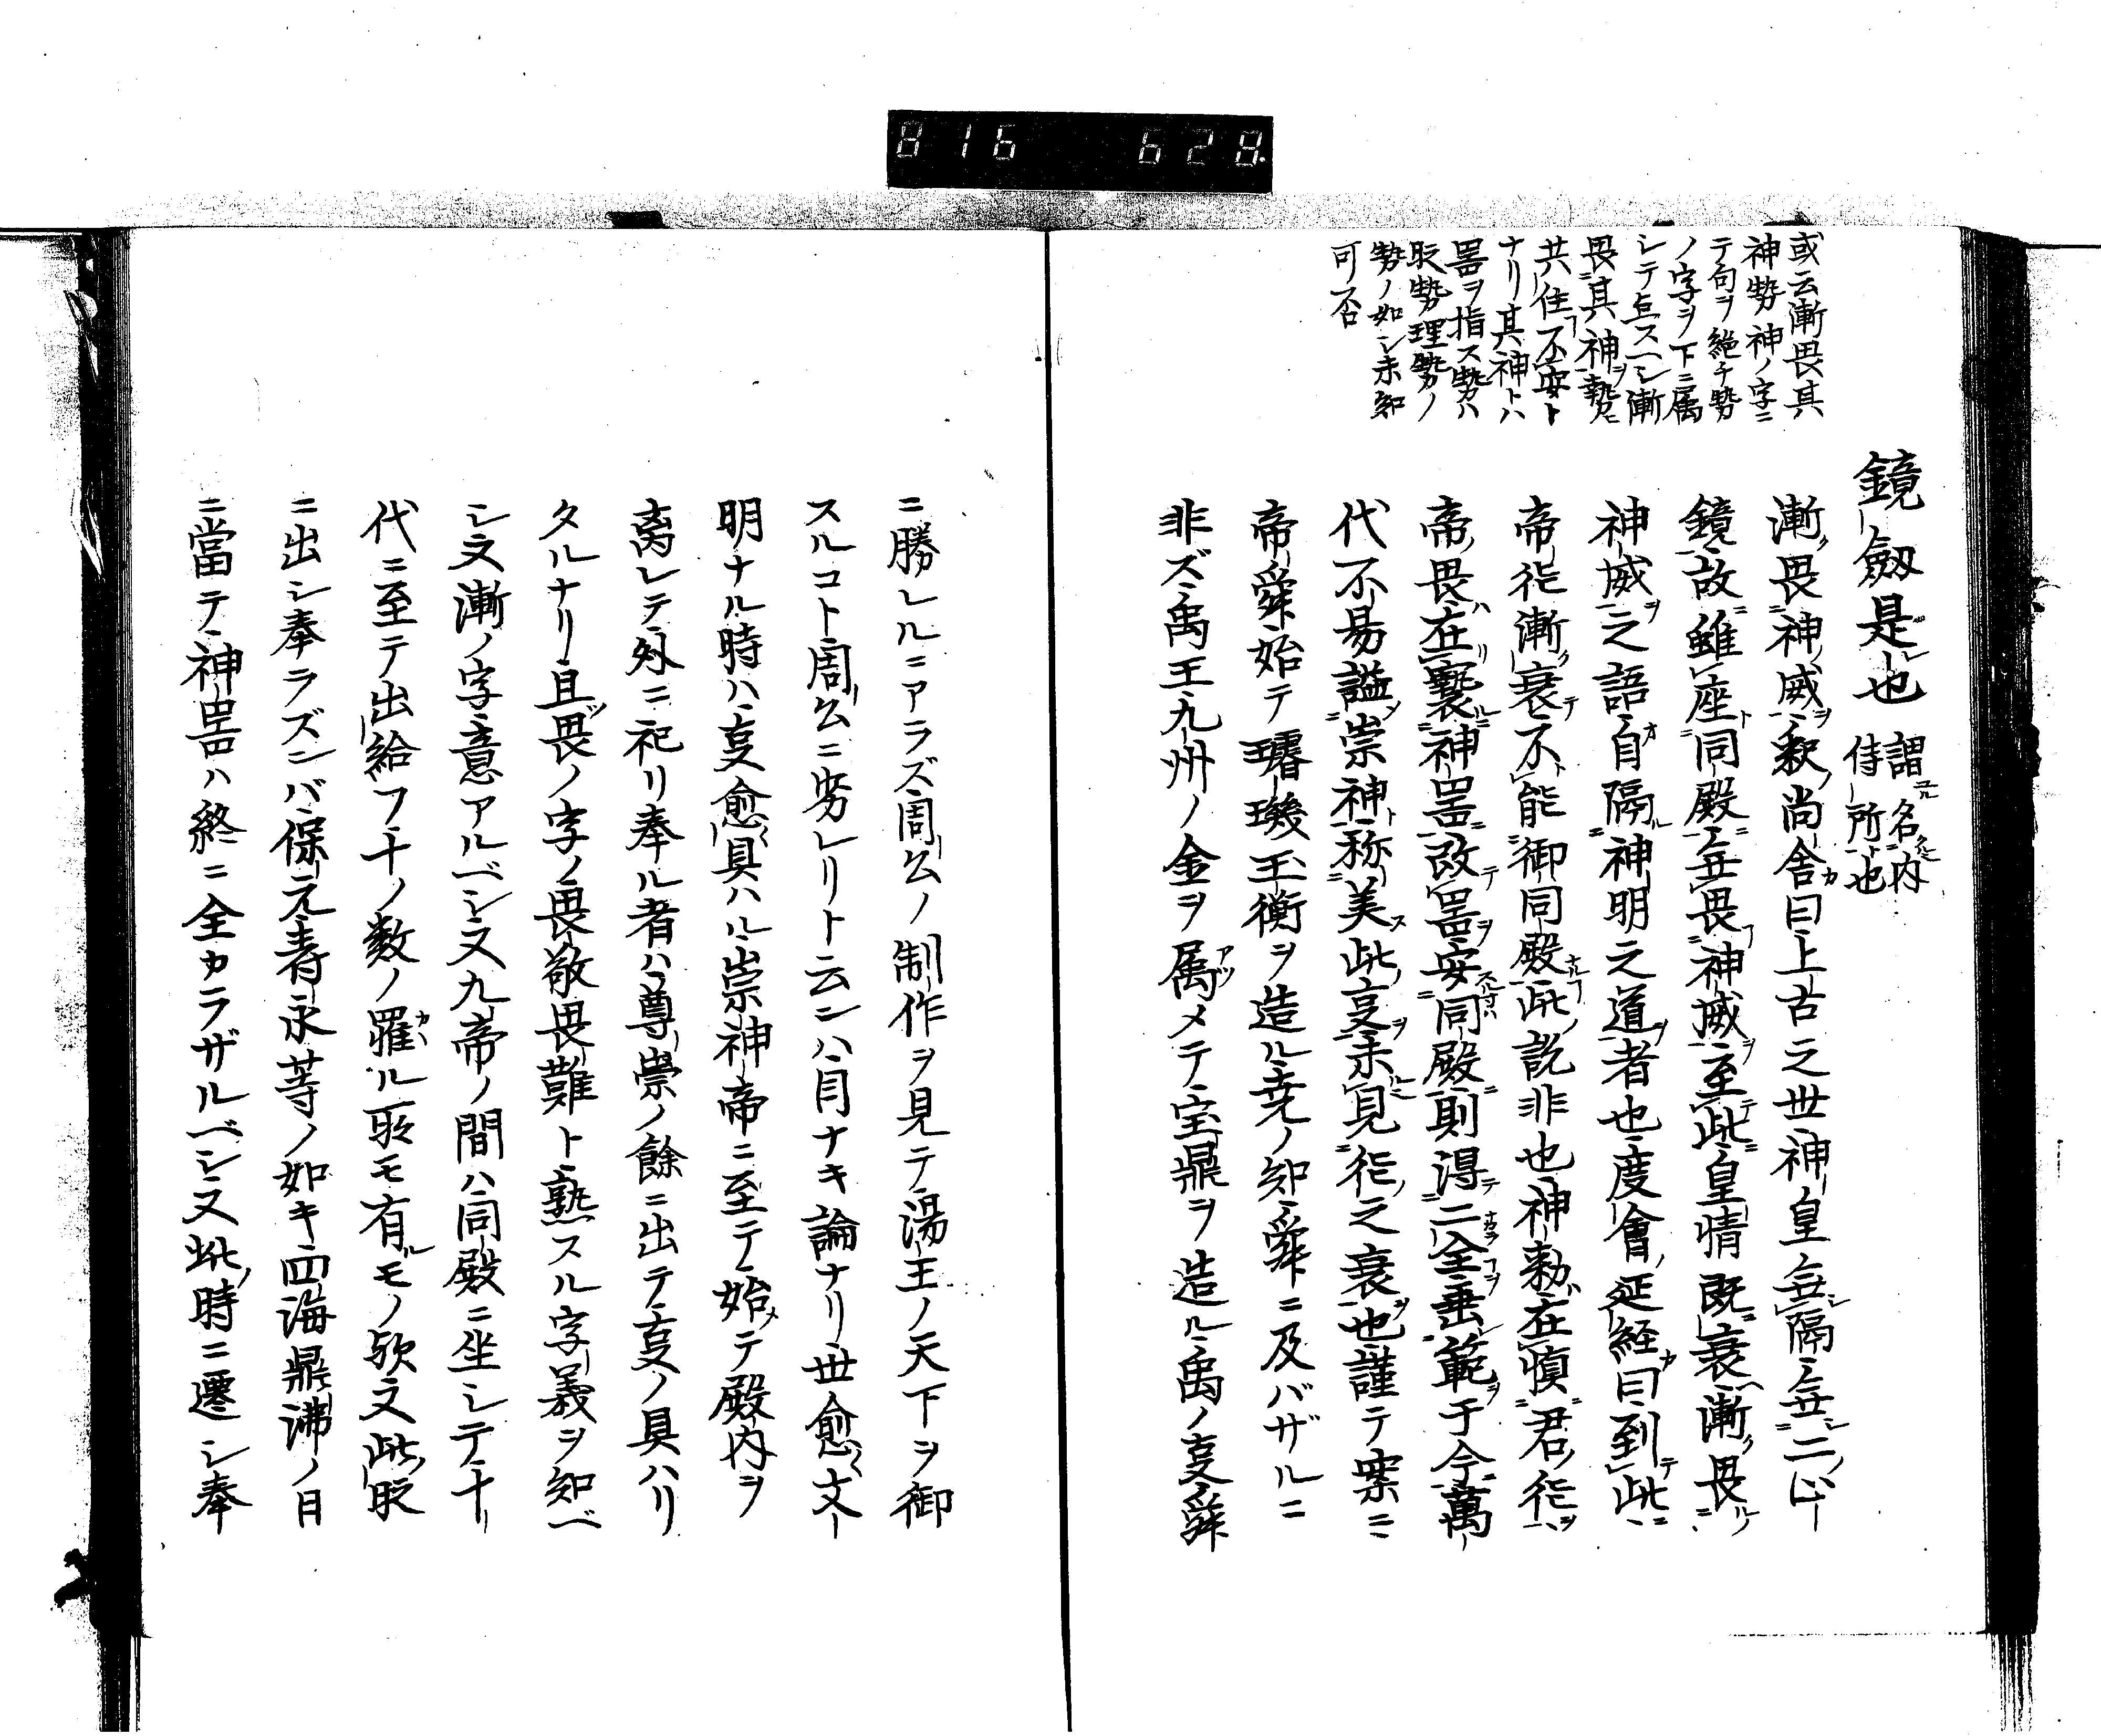 816 628.
或云漸畏其
神勢神ノ字ニ
テ句ヲ絶チ勢
ノ字ヲ下ニ属
シテ点スヘシ漸
畏其神勢
共住不安ト
ナリ其神トハ
器ヲ指ス勢ハ
取勢理勢ノ
勢ノ如シ未知
可否
鏡劔是也 謂名内
侍所也
漸畏神威釈尚舎曰上古之世神皇無隔無二心
鏡故雖座同殿無畏神威至此皇情既衰漸畏
神威之語自隔神明之道者也度會延経曰到此
帝徳漸衰不能御同殿此説非也神勅在慎君徳
帝畏在褻神器改器安同殿則得二全垂範于今萬
代不易謚崇神称美此㕝未見徳之衰也謹テ案ニ
帝舜始テ璿璣玉衡ヲ造ル尭ノ知舜ニ及バザルニ
非ズ禹王九州ノ金ヲ属メテ宝鼎ヲ造ル禹ノ㕝舜
ニ勝レルニアラズ周公ノ制作ヲ見テ湯王ノ天下ヲ御
スルコト周公ニ劣レリト云ンハ目ナキ論ナリ世愈文
明ナル時ハ㕝愈具ハル崇神帝ニ至テ始テ殿内ヲ
离レテ外ニ祀リ奉ル者ハ尊崇ノ餘ニ出テ㕝ノ具ハリ
タルナリ且畏ノ字ノ畏敬畏難ト熟スル字義ヲ知ベ
シ又漸ノ字意アルベシ又九帝ノ間ハ同殿ニ坐シテ十
代ニ至テ出給フ十ノ数ノ羅ル所モ有ルモノ欤又此眹
ニ出シ奉ラズンバ保元壽永等ノ如キ四海鼎沸ノ日
ニ當テ神器ハ終ニ全カラザルベシ又此時ニ遷シ奉